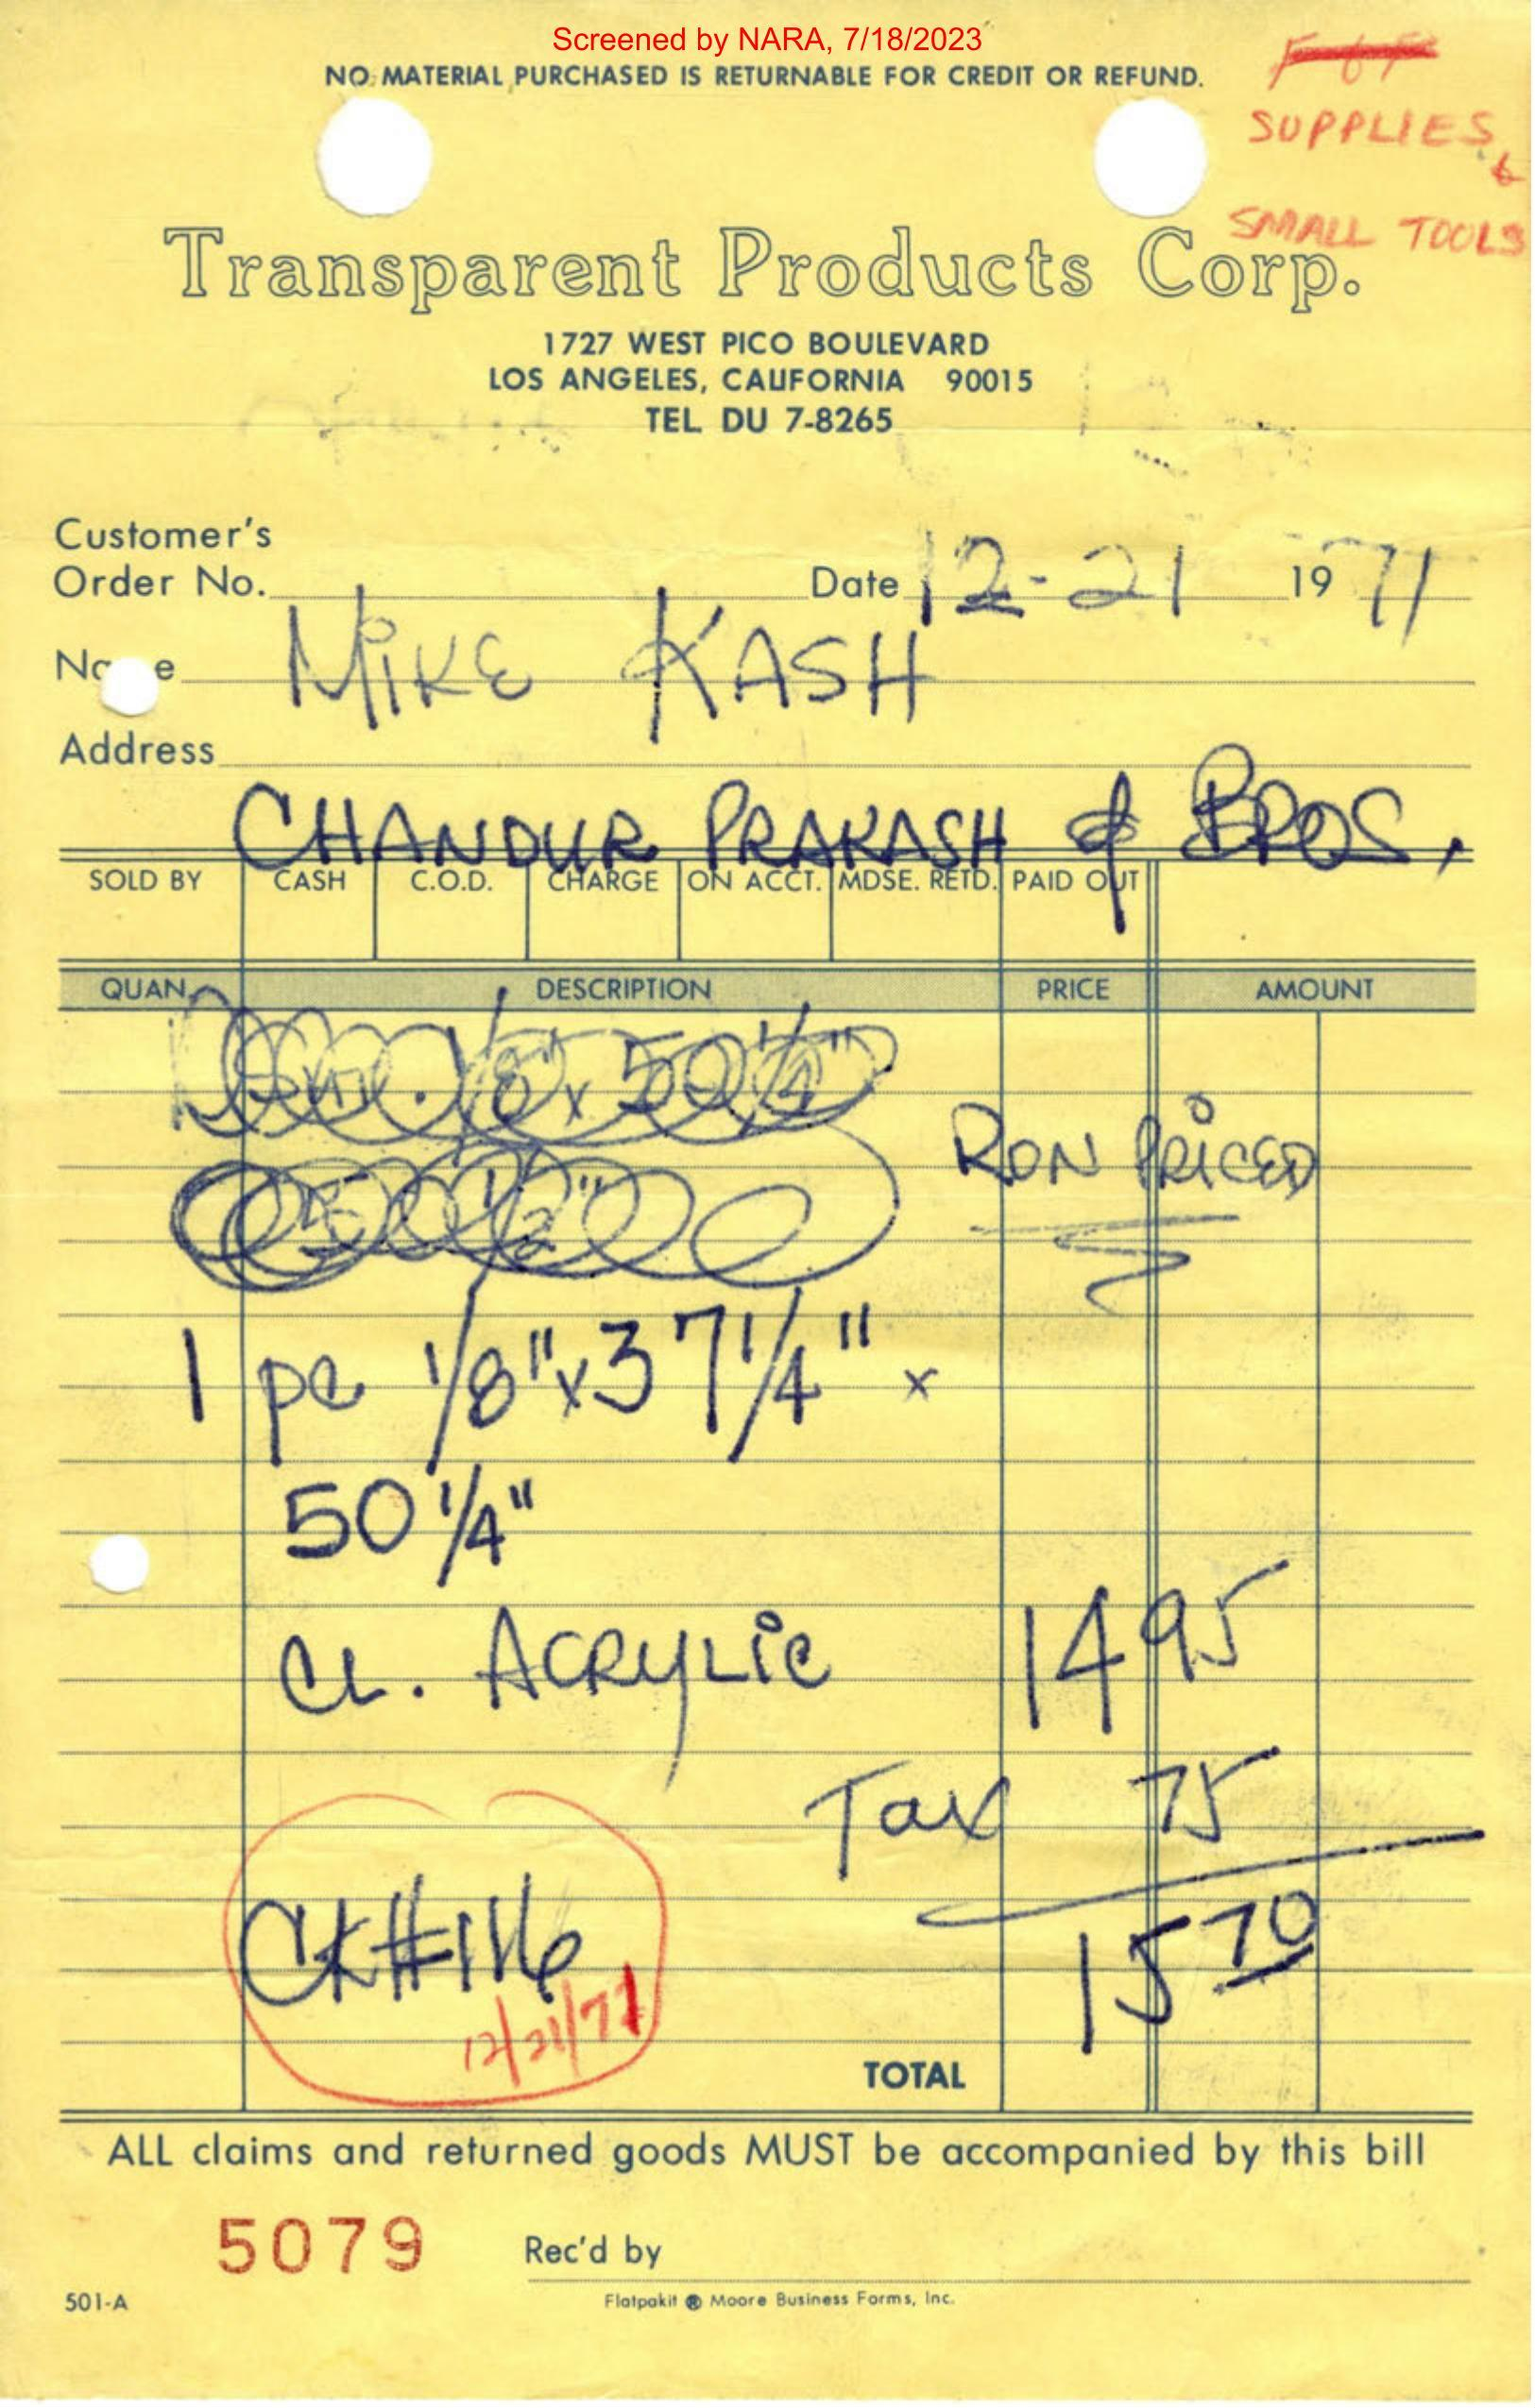 Screened by NARA, 7/18/2023
NO MATERIAL PURCHASED IS RETURNABLE FOR CREDIT OR REFUND.
SUPPLIES &
SMALL TOOLS
Transparent Products Corp.
1727 WEST PICO BOULEVARD
LOS ANGELES, CALIFORNIA 90015
TEL DU 7-8265
Customer's
Order No. Date 12-21 1971
Name MIKE KASH
Address
CHANDUR PRAKASH & BROS.
SOLD BY CASH C.O.D. CHARGE ON ACCT. MDSE. RETD. PAID OUT
QUAN. DESCRIPTION PRICE AMOUNT
1/8" x 50 1/4"
RON PRICED
50 1/2"
1 pc 1/8" x 37 1/4" x
50 1/4"
CL. ACRYLIC 14 95
Tax 75
CK#116 15 70
12/21/71
TOTAL
ALL claims and returned goods MUST be accompanied by this bill
5079 Rec'd by
501-A Flatpakit ® Moore Business Forms, Inc.